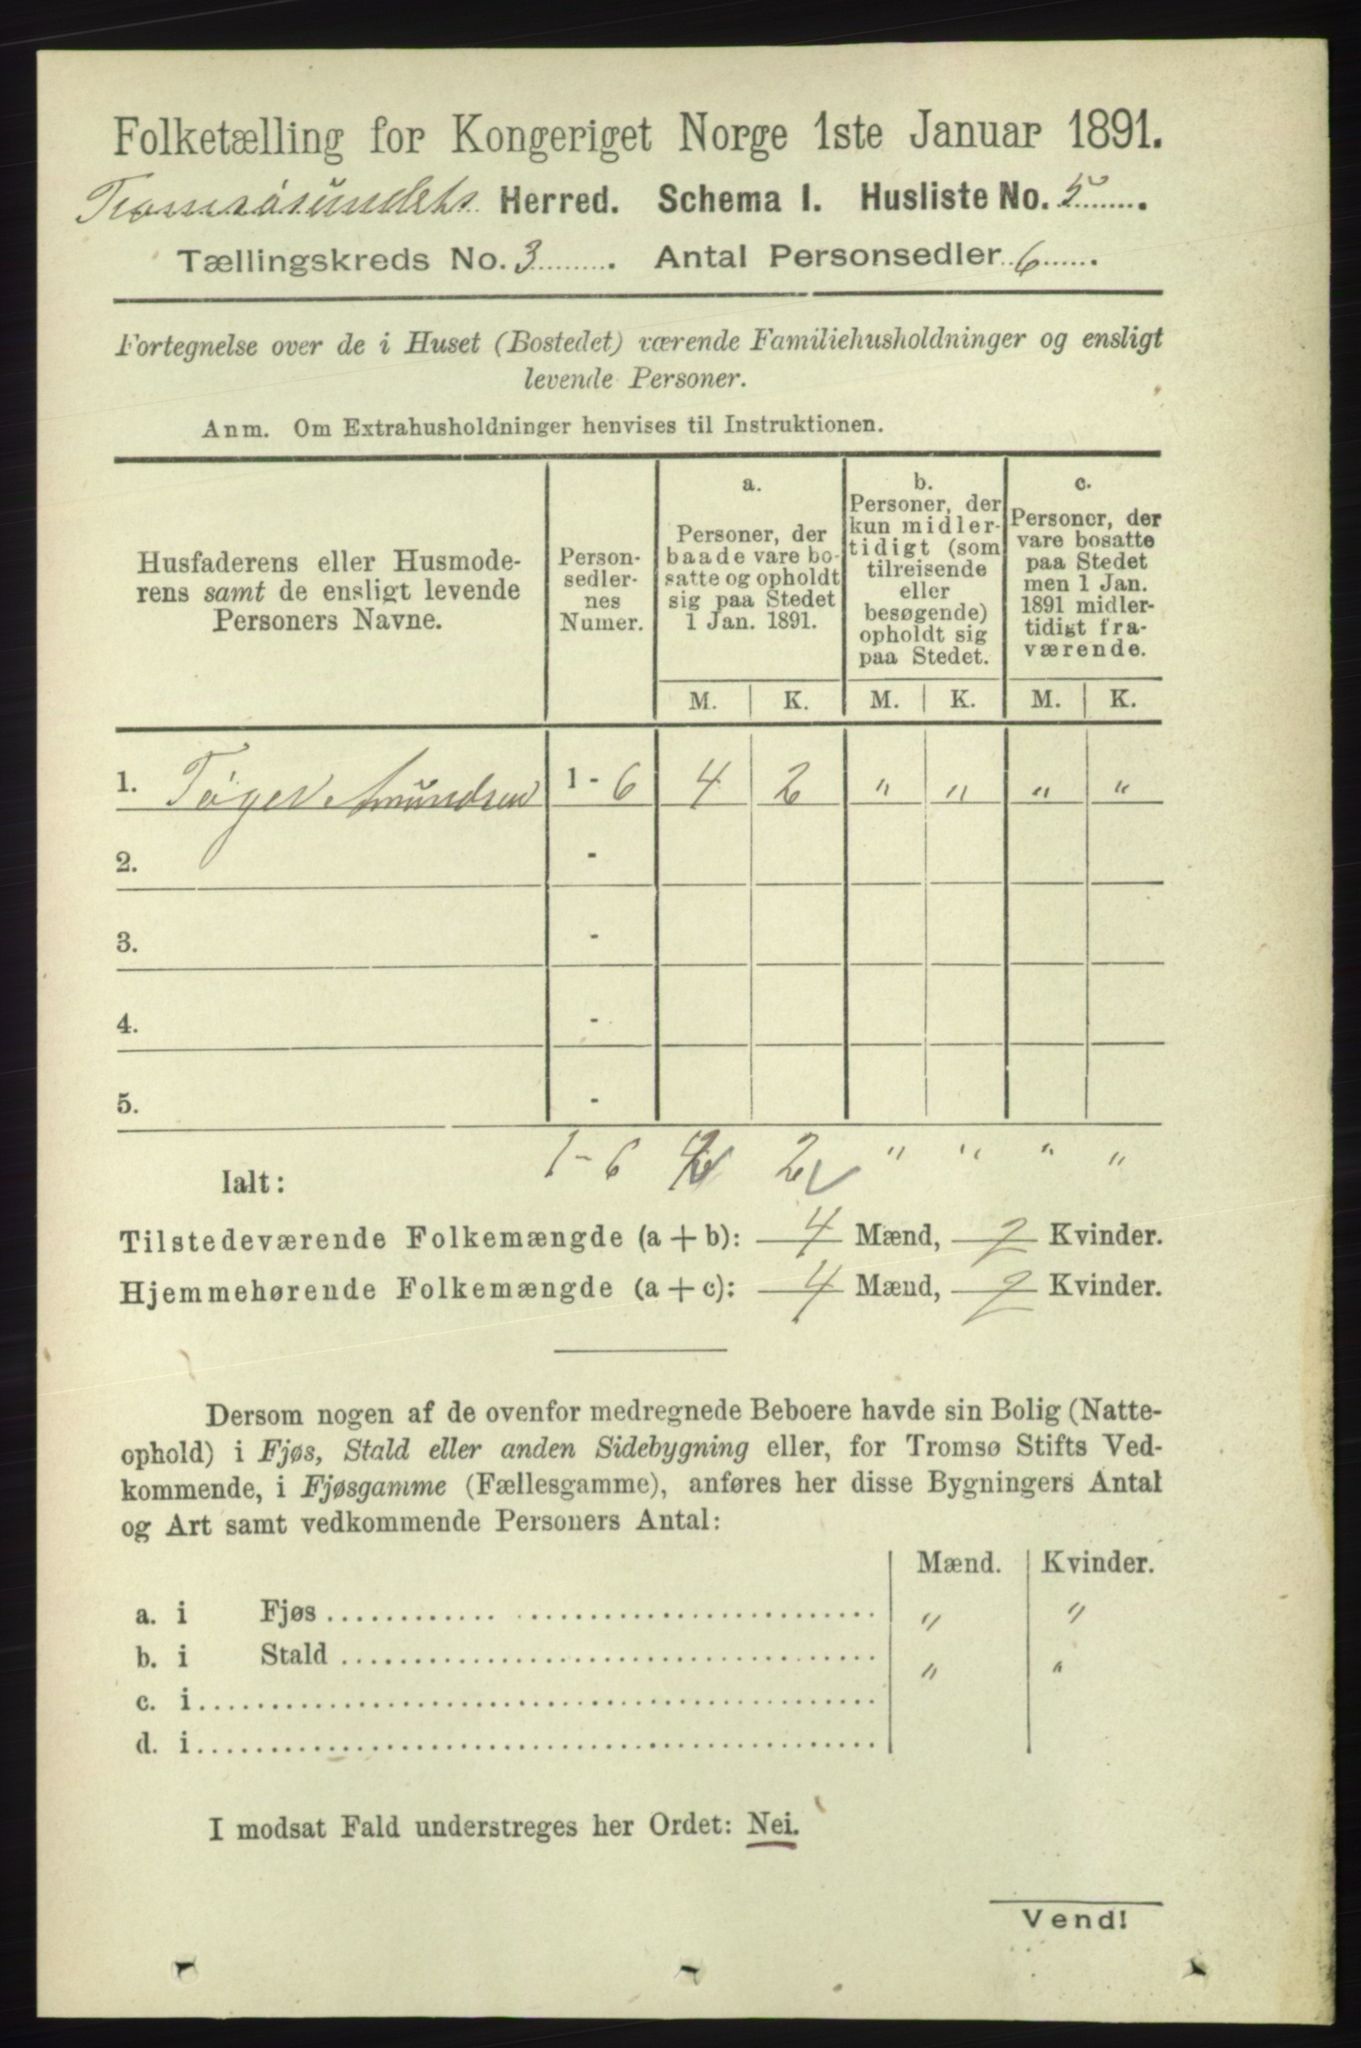 Folketælling for Kongeriget Norge 1ste Januar 1891.
Tromsøsundets Herred. Schema I. Husliste No. 5
Tællingskreds No. 3. Antal Personsedler 6.
Fortegnelse over de i Huset (Bostedet) værende Familiehusholdninger og ensligt
levende Personer.
Anm. Om Extrahusholdninger henvises til Instruktionen.
Husfaderens eller Husmode-
rens samt de ensligt levende
Personers Navne.
Person-
sedler-
nes
Numer.
a.
Personer, der
baade vare bo-
satte og opholdt
sig paa Stedet
1 Jan. 1891.
b.
Personer, der
kun midler-
tidigt (som
tilreisende
eller
besøgende)
opholdt sig
paa Stedet.
c.
Personer, der
vare bosatte
paa Stedet
men 1 Jan.
1891 midler-
tidigt fra-
værende.
M. K. M. K. M. K.
1. Tøger Amundsen 1 - 6 4 2 " " " "
2. -
3. -
4. -
5. -
Ialt: 1-6 4 2 " " " "
Tilstedeværende Folkemængde (a + b): 4 Mænd, 2 Kvinder.
Hjemmehørende Folkemængde (a + c): 4 Mænd, 2 Kvinder.
Dersom nogen af de ovenfor medregnede Beboere havde sin Bolig (Natte-
ophold) i Fjøs, Stald eller anden Sidebygning eller, for Tromsø Stifts Ved-
kommende, i Fjøsgamme (Fællesgamme), anføres her disse Bygningers Antal
og Art samt vedkommende Personers Antal:
Mænd. Kvinder.
a. i Fjøs " "
b. i Stald " "
c. i
d. i
I modsat Fald understreges her Ordet: Nei.
Vend!